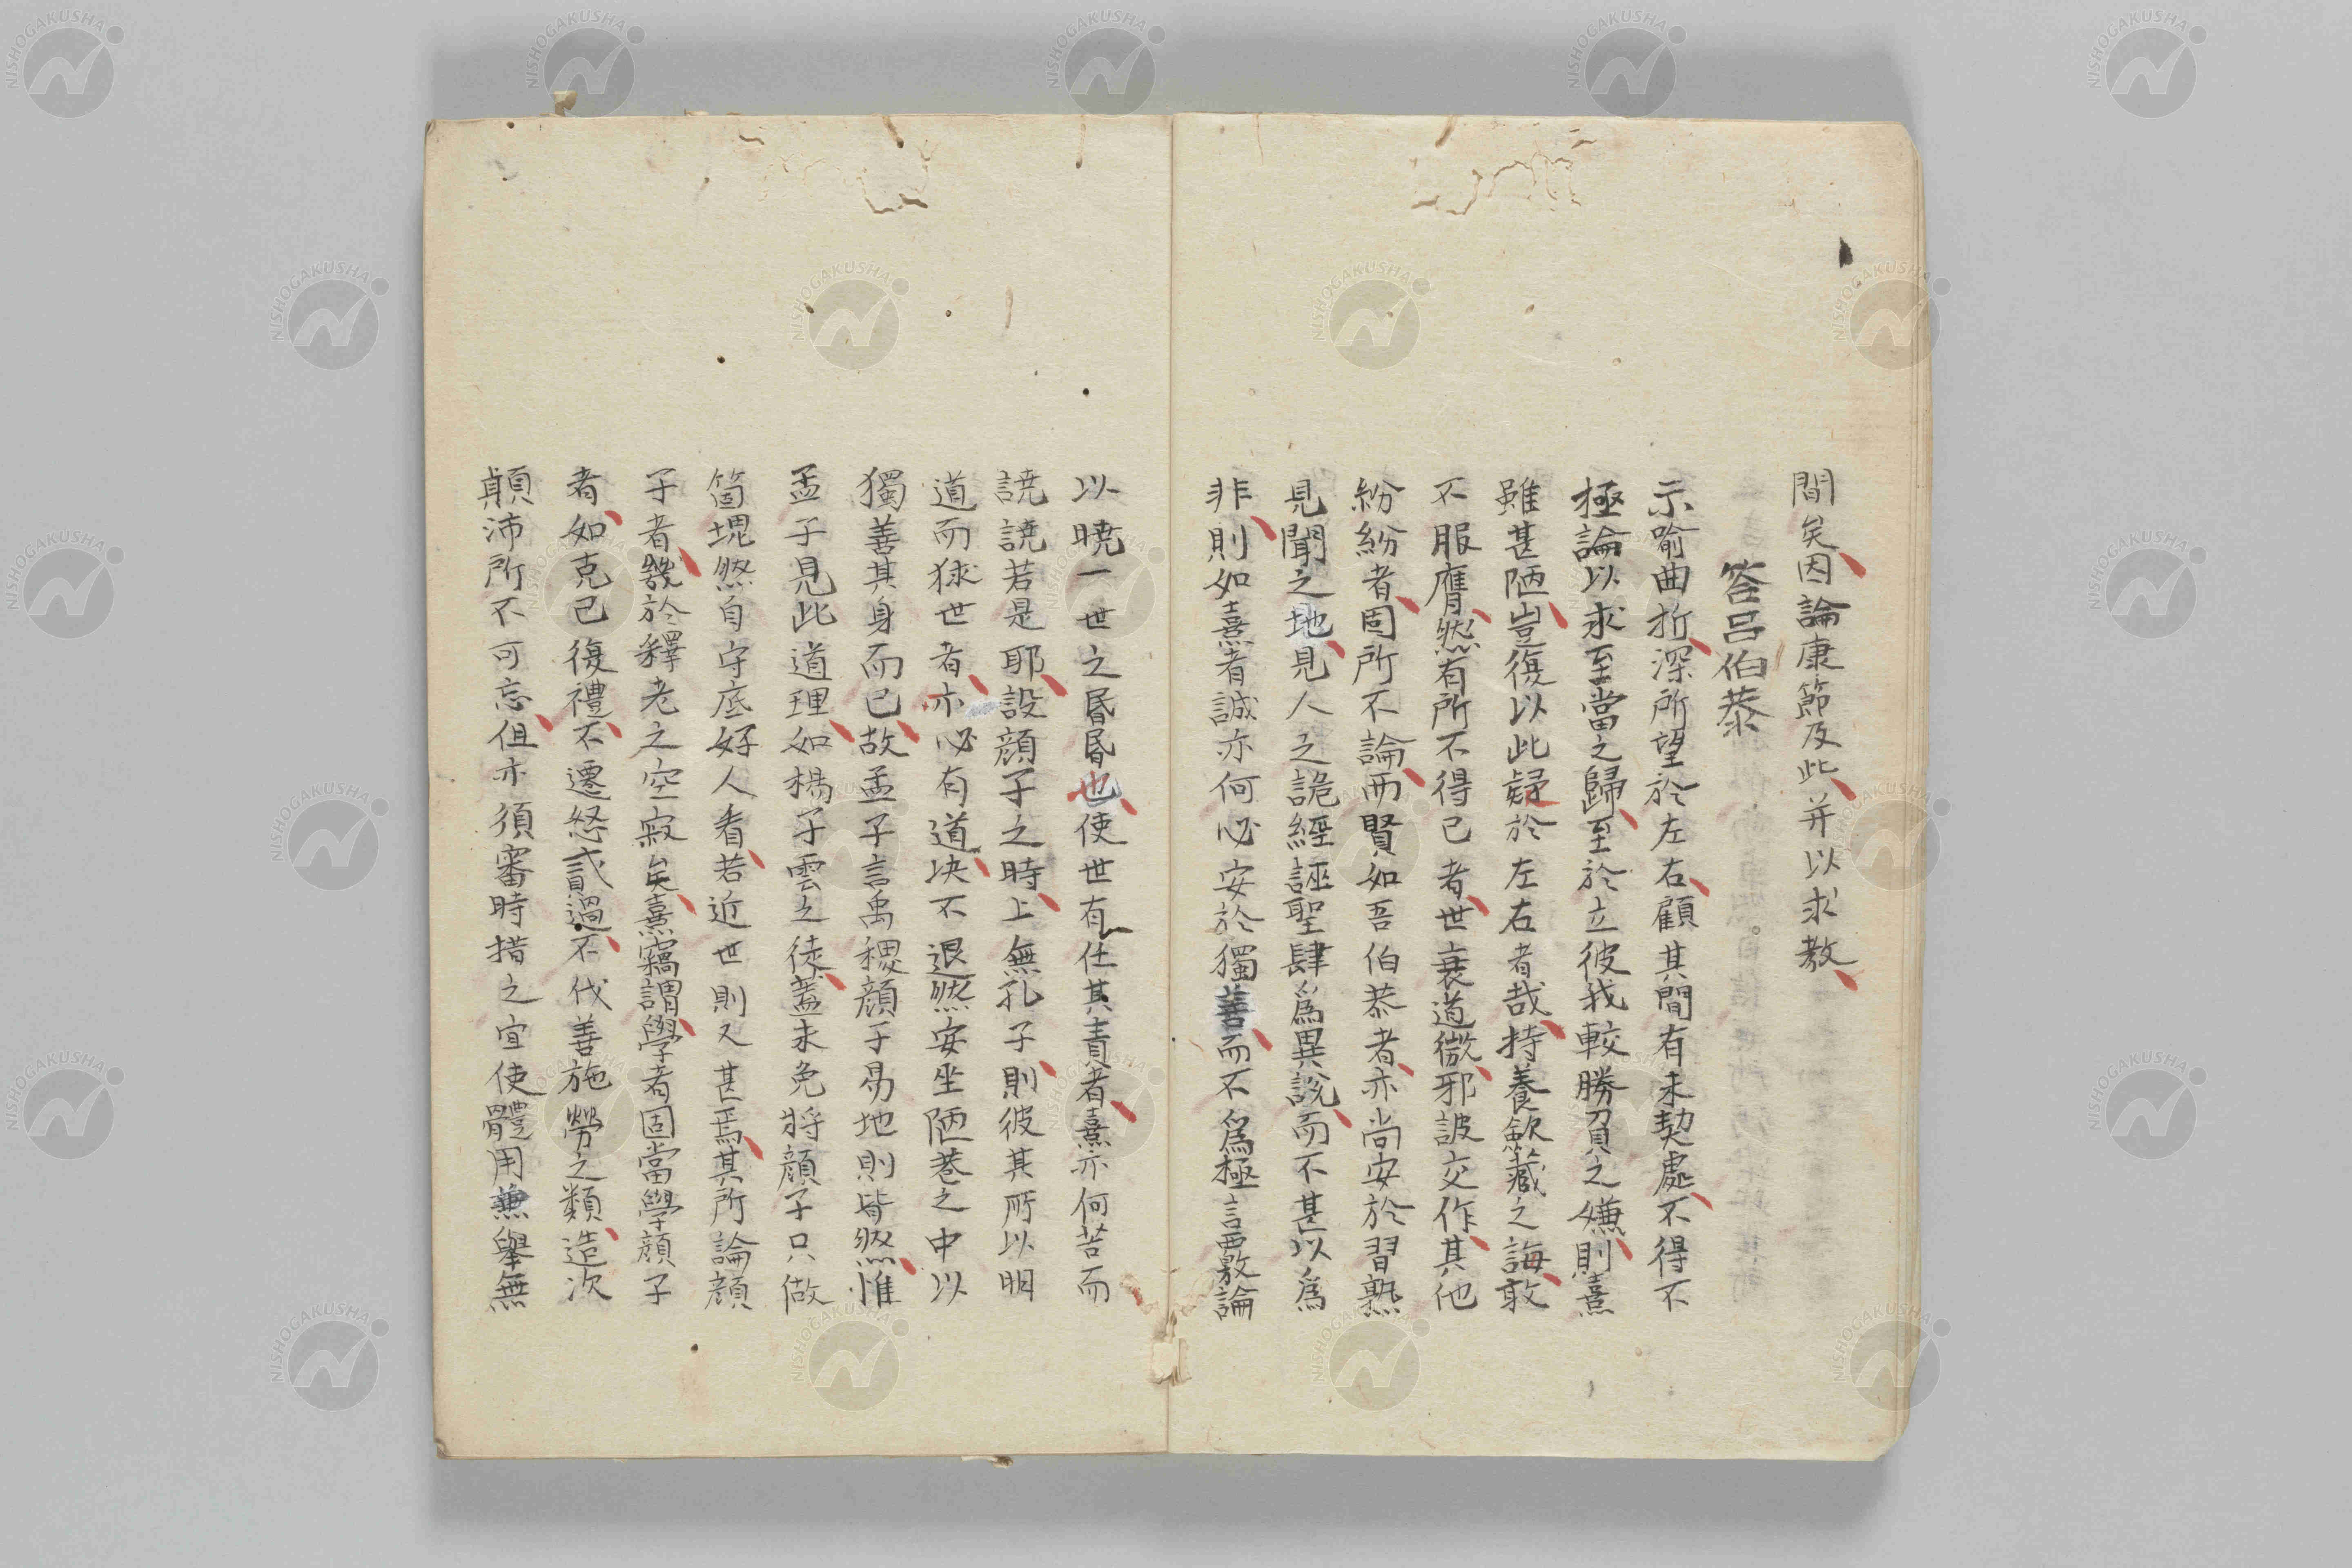 間矣因論康節及此并以求教
答呂伯恭
示喩曲折深所望於左右顧其間有未契處不得不
極論以求至當之歸至於立彼我較勝負之嫌則熹
雖甚陋豈復以此疑於左右者哉持養歛藏之誨敢
不服膺然有所不得已者世衰道微邪詖交作其他
紛紛者固所不論而賢如吾伯恭者亦尚安於習熟
見聞之地見人之詭經誣聖肆爲異說而不甚以爲
非則如熹者誠亦何必安於獨善而不爲極言覈論
以曉一世之昬昬也使世有任其責者熹亦何苦而
譊譊若是耶設顔子之時上無孔子則彼其所以明
道而捄世者亦必有道决不退然安坐陋巷之中以
獨善其身而已故孟子言禹稷顔子易地則皆然惟
孟子見此道理如楊子雲之徒蓋未免將顔子只做
箇塊然自守底好人看若近世則又甚焉其所論顔
子者幾於釋老之空寂矣熹竊謂學者固當學顔子
者如克己復禮不遷怒貳過不伐善施勞之類造次
顛沛所不可忘但亦須審時措之宜使體用兼舉無
NISHOGAKUSHA